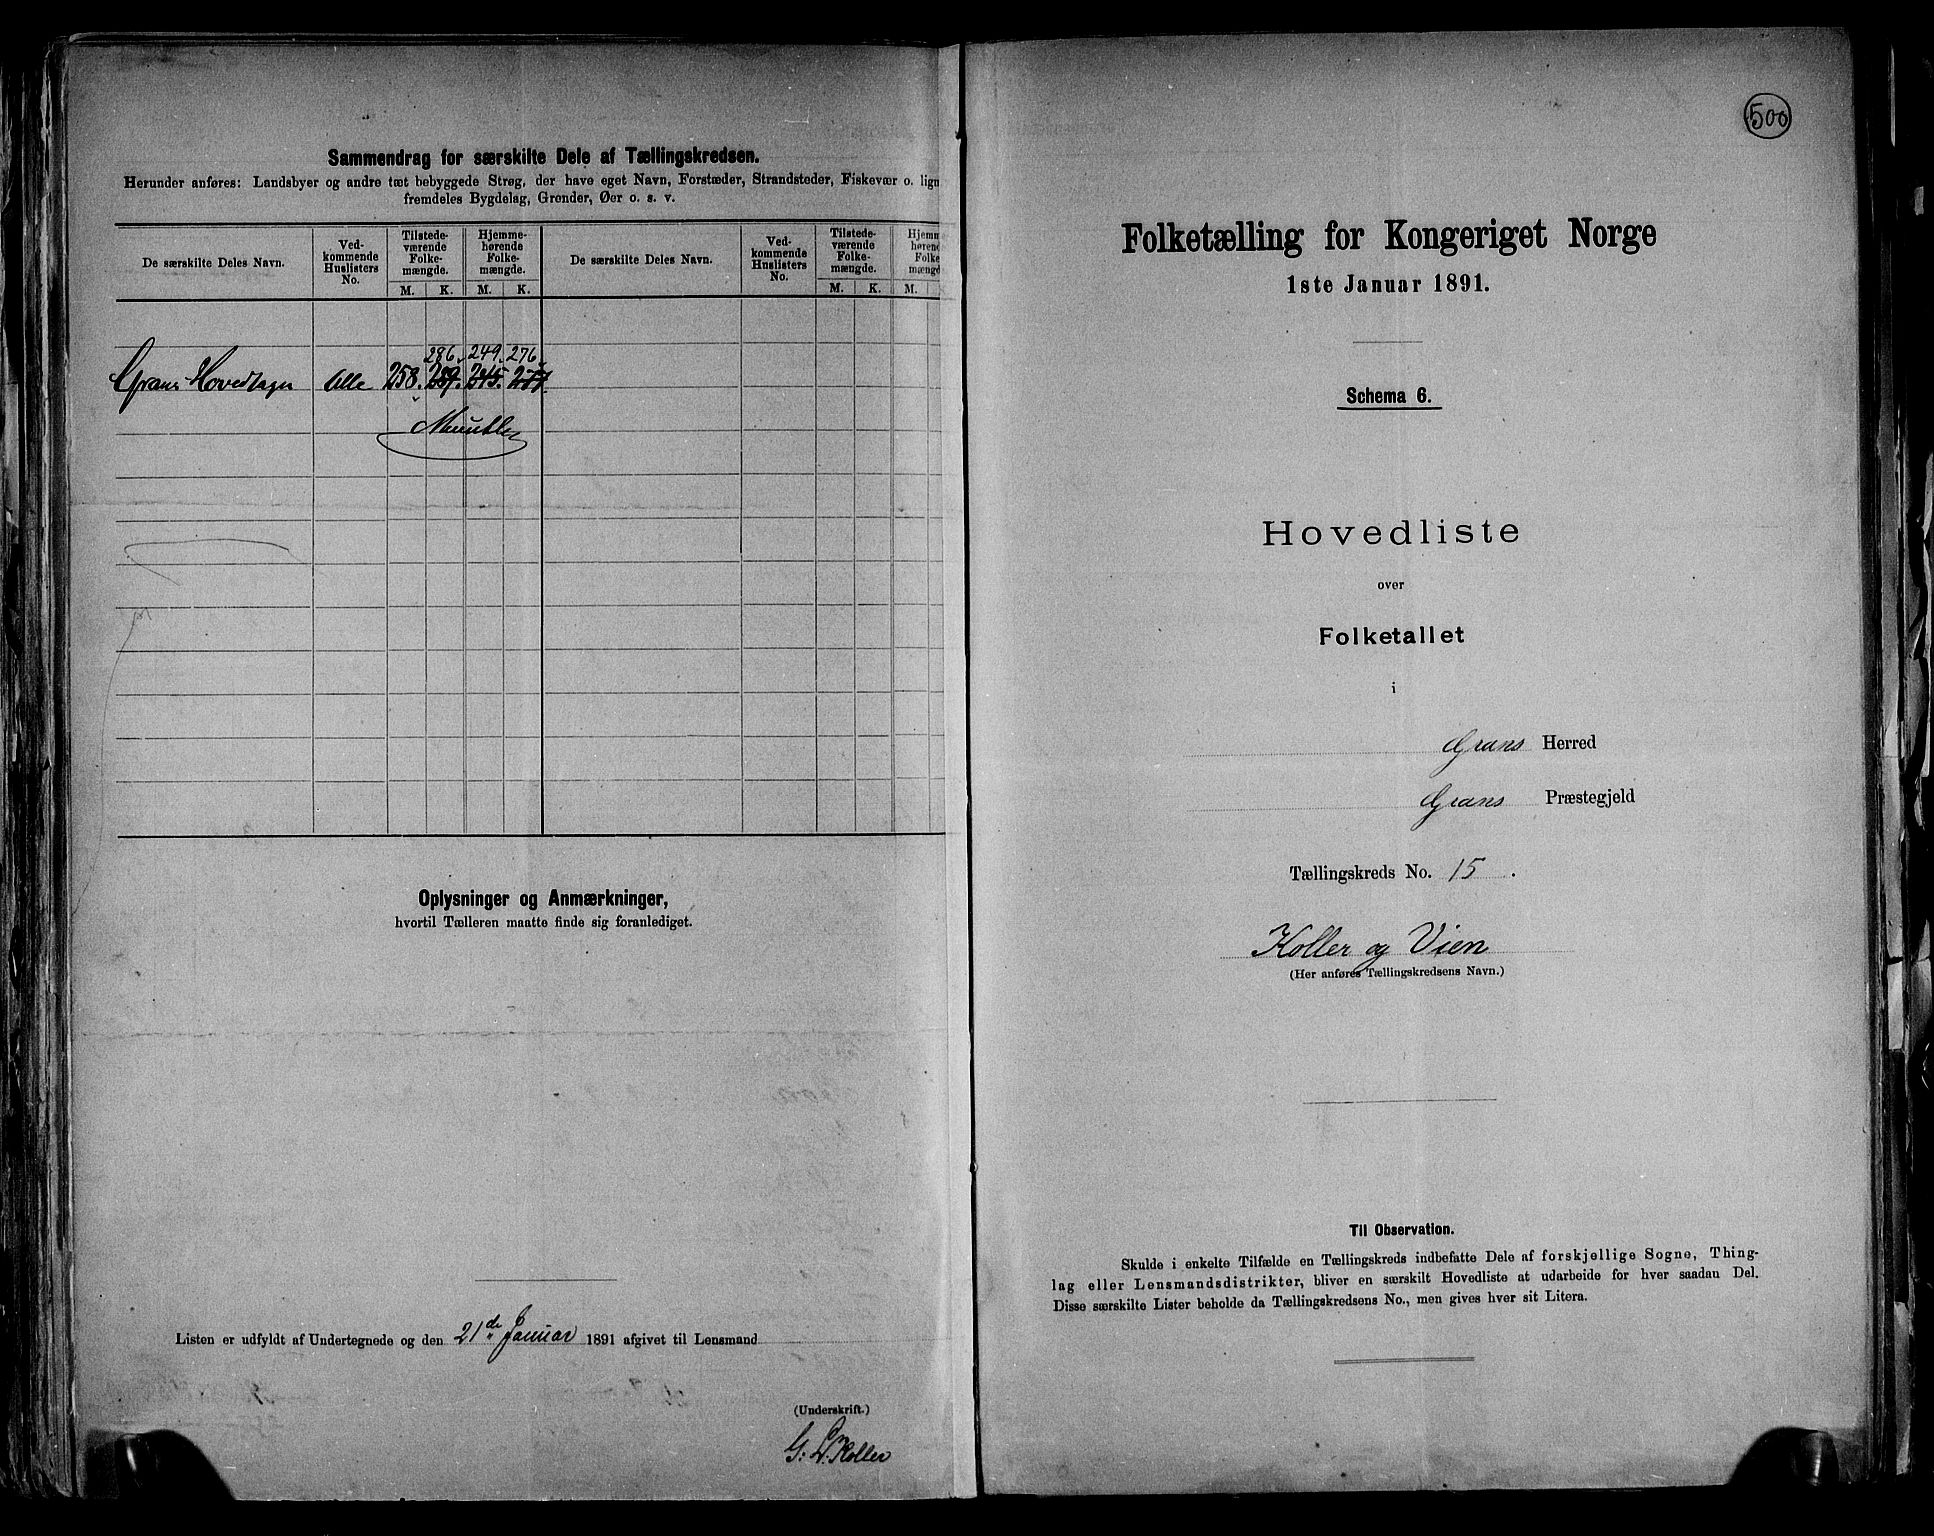 Sammendrag for særskilte Dele af Tællingskredsen.
Herunder anføres: Landsbyer og andre tæt bebyggede Strøg, der have eget Navn, Forstæder, Strandsteder, Fiskevær o. lign
fremdeles Bygdelag, Grender, Øer o. s. v.
De særskilte Deles Navn.
Ved-
kommende
Huslisters
No.
Tilstede-
værende
Folke-
mængde.
M. K.
Hjemme-
hørende
Folke-
mængde.
M. K.
De særskilte Deles Navn.
Ved-
kommende
Huslisters
No.
Tilstede-
værende
Folke-
mængde.
M. K.
Hjemm
hørend
Folke
mængd
M.
286. 249. 276
Grans Hovedsogn Alle 258. 289. 245. 277.
Oplysninger og Anmærkninger,
hvortil Tælleren maatte finde sig foranlediget.
Listen er udfyldt af Undertegnede og den 21de Januar 1891 afgivet til Lensmand
(Underskrift.)
G. L. Koller
500
Folketælling for Kongeriget Norge
1ste Januar 1891.
Schema 6.
Hovedliste
over
Folketallet
i
Grans Herred
Grans Præstegjeld
Tællingskreds No. 15.
Koller og Vien
(Her anføres Tællingskredsens Navn.)
Til Observation.
Skulde i enkelte Tilfælde en Tællingskreds indbefatte Dele af forskjellige Sogne, Thing-
lag eller Lensmandsdistrikter, bliver en særskilt Hovedliste at udarbeide for hver saadan Del.
Disse særskilte Lister beholde da Tællingskredsens No., men gives hver sit Litera.